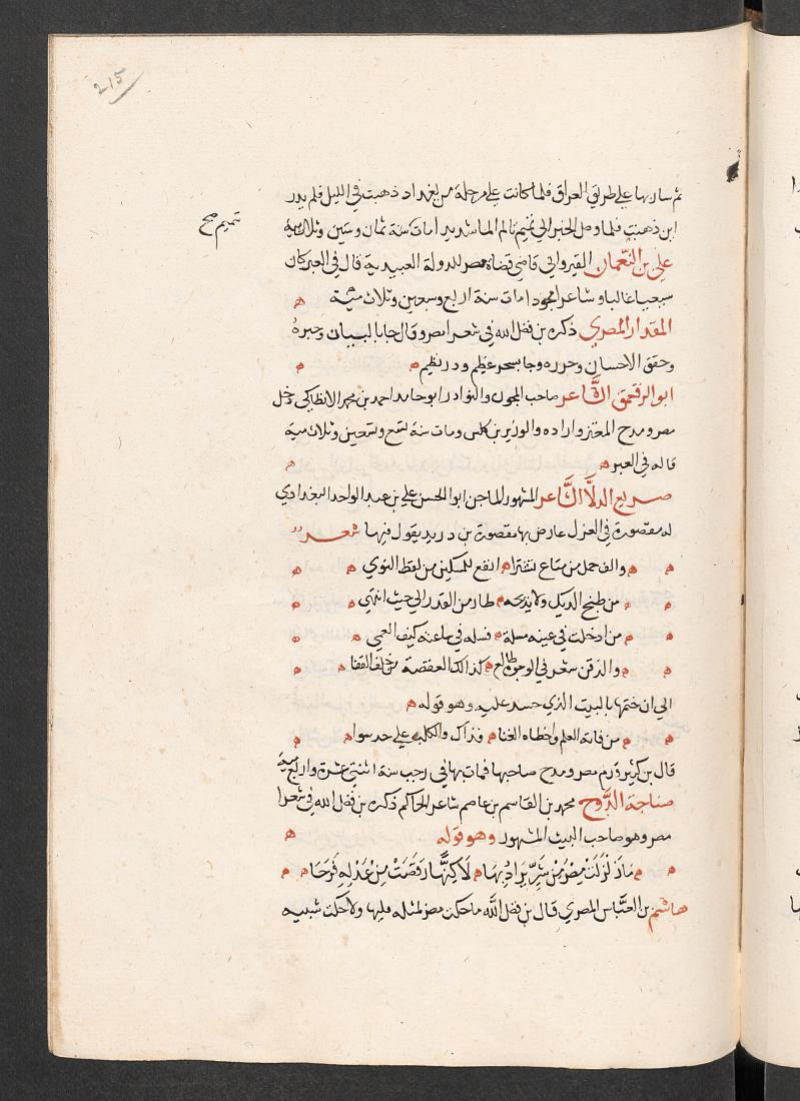 215
ثم سار بها على طريق العراق فلما كانت على مرحلة من بغداد ذهبت في الليل فلم يدر
اين ذهبت فلما وصل الخبر الي تميم تالم الما شديدا مات سنة ثمان وستين وثلاثمية
تميم صح
علي بن النعمان القيرواني قاضي قضاة مصر للدولة العبيدية قال في العبر كان
شيعيا غاليا وشاعرا مجودا مات سنة اربع وسبعين وثلاث مئية
المقدار المصري ذكره بن فضل الله في شعرا مصر وقال جابا لبيان وحبره
وحقق الاحسان وحرره وجا بسحر عظيم ودر نظيم
ابو الرقعمق الشاعر صاحب المجون والنوادر ابو حامد احمد بن محمد الانطاكي دخل
مصر ومدح المعتز واراده والوزير بن كلس ومات سنة تسع وتسعين وثلاث مية
قاله في العبر
صريع الدلا الشاعر المشهور الماجن ابو الحسن علي بن عبد الواحد البغدادي
له مقصورة في الهزل عارض بها مقصورة بن دريد يقول فيها شعر
والف حمل من متاع تشترا انفع للمسكين من لقط النوي
من طبخ الديك ولا يذبحه طار من القدر الي حيث انتهي
من ادخلت في عينه مسلة فسله في ساعته كيف العمي
والذقن شعر في الوجوه طالع كذالك العقصة من خلف القفا
الي ان ختمها بالبيت الذي حسد عليه وهو قوله
من فاته العلم واخطاه الغنا فذاك والكلب علي حد سوا
قال بن كثير قدم مصر ومدح صاحبها فمات بها في رجب سنة اثنتي عشرة واربع مية
صناجة الدوح محمد بن القاسم بن عاصم شاعر الحاكم ذكره بن فضل الله في شعرا
مصر وهو صاحب البيت المشهور وهو قوله
مَا زُلْزِلَتْ مِصْرُ مِنْ شَرٍّ يُرَادُ بِهَا لَاكِنَّهَا رَقَصَتْ مِنْ عَدْلِهِ فَرَحَا
هاشم بن العباس المصري قال بن فضل الله ما حكت مصر لمثله ولا حكت شبيه